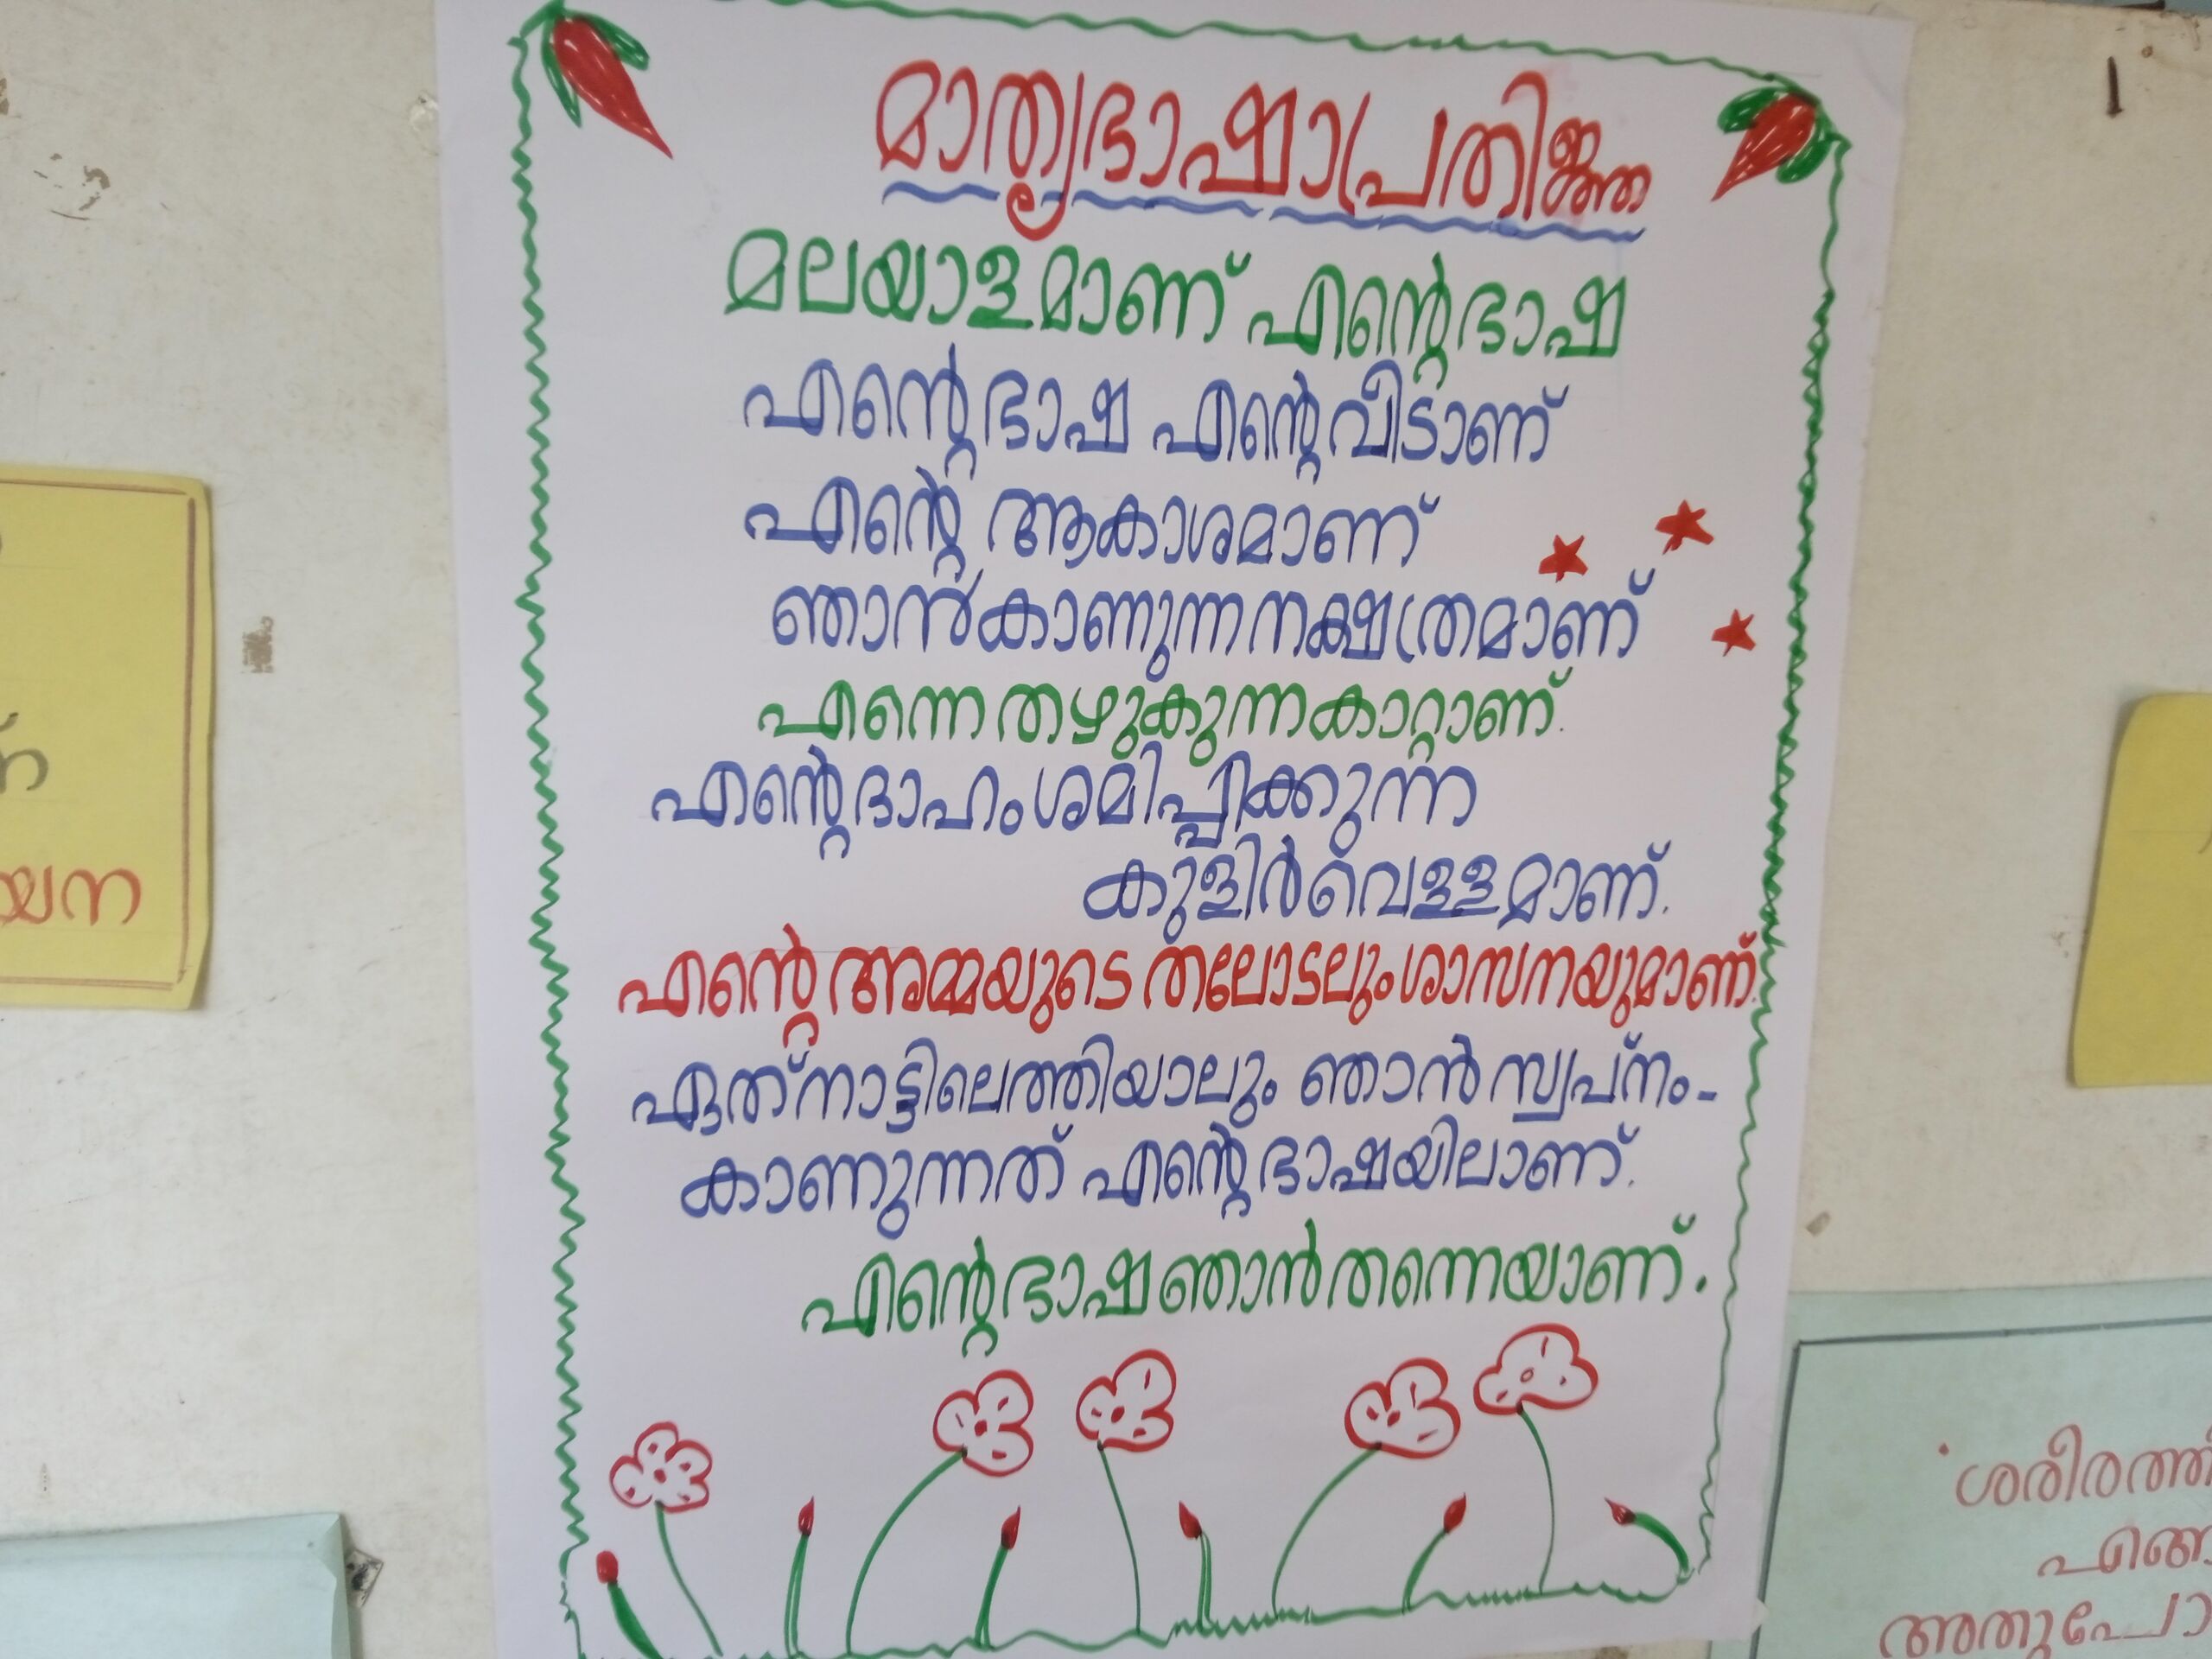 മാതൃഭാഷാപ്രതിജ്ഞ
മലയാളമാണ് എന്റെ ഭാഷ
എന്റെ ഭാഷ എന്റെ വീടാണ്
എന്റെ ആകാശമാണ്
ഞാൻ കാണുന്ന നക്ഷത്രമാണ്
എന്നെ തഴുകുന്ന കാറ്റാണ്.
എന്റെ ദാഹം ശമിപ്പിക്കുന്ന
കുളിർവെള്ളമാണ്.
എന്റെ അമ്മയുടെ തലോടലും ശാസനയുമാണ്.
ഏത് നാട്ടിലെത്തിയാലും ഞാൻ സ്വപ്നം-
കാണുന്നത് എന്റെ ഭാഷയിലാണ്.
എന്റെ ഭാഷ ഞാൻ തന്നെയാണ്.